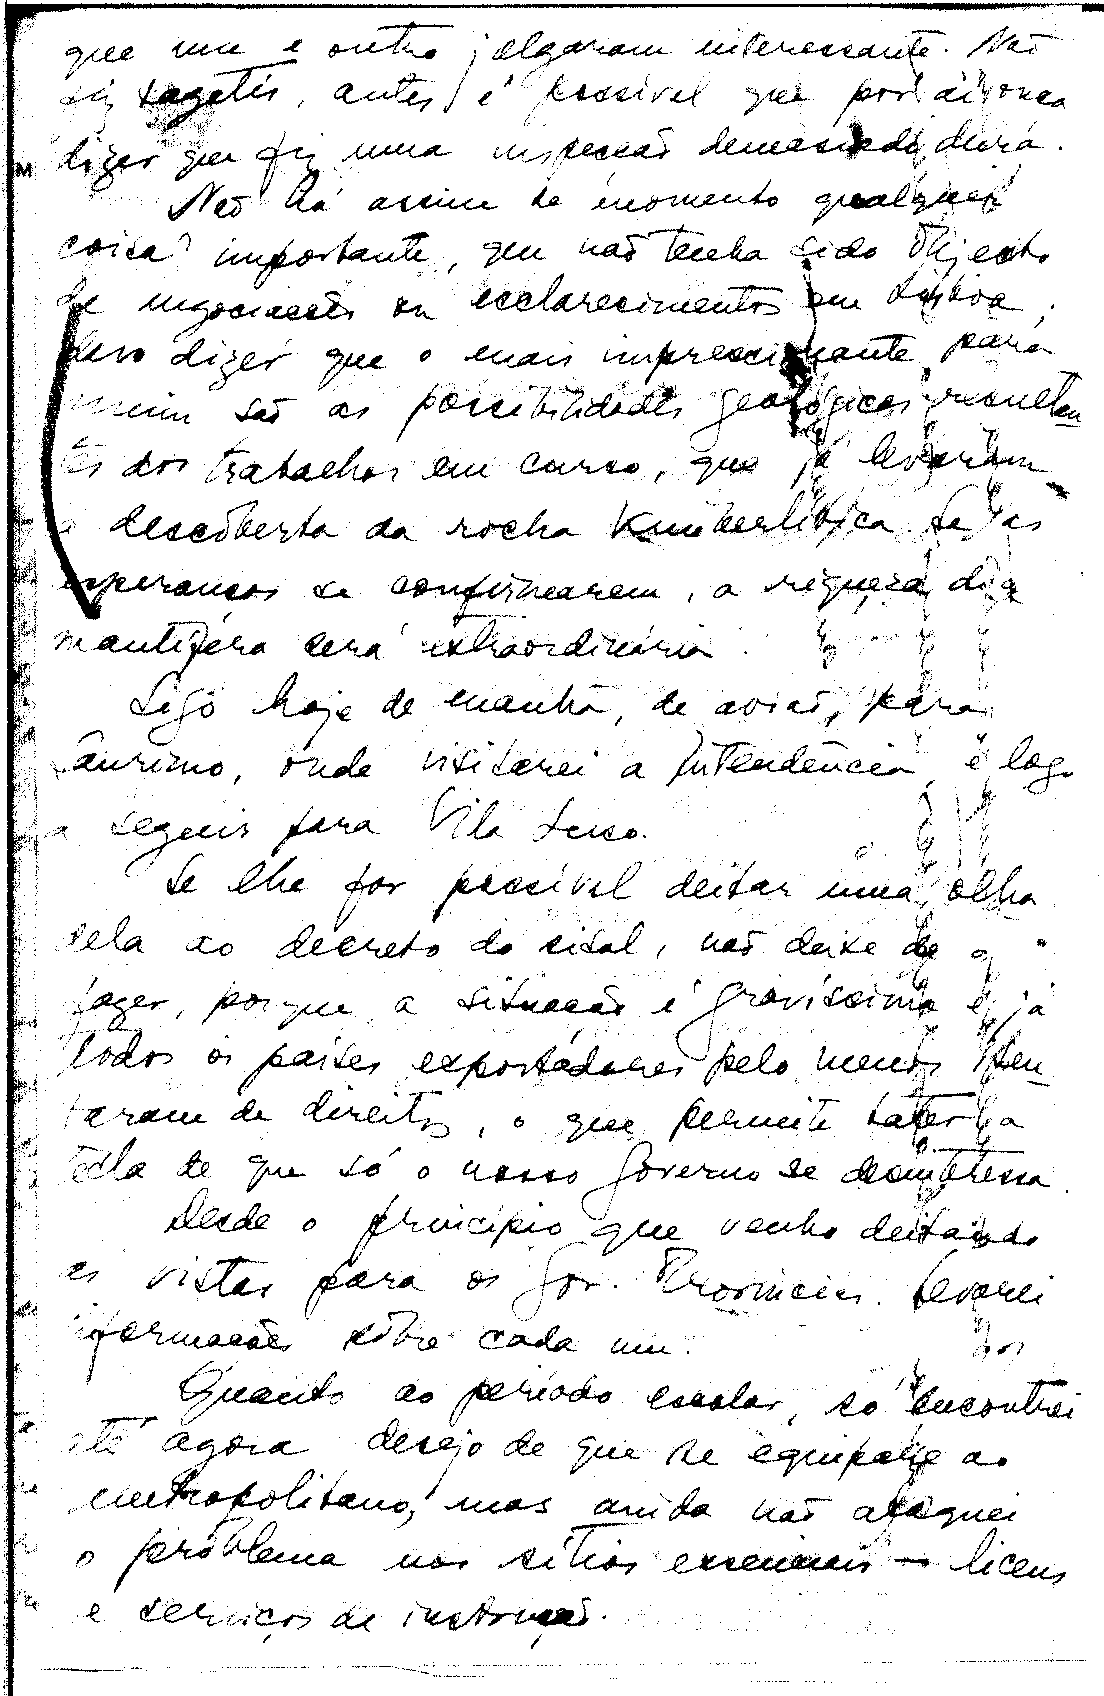 que um e outro julgaram interessante. Não
fiz sagetis, antes é possível que por aí ouça
dizer que fiz uma inspecção demasiado dura.
Não há assim de momento qualquer
coisa importante, que não tenha sido objecto
de negociações ou esclarecimentos em Lisboa.
Devo dizer que o mais impressionante para
mim são as possibilidades geológicas resultan
tes dos trabalhos em curso, que já levaram
à descoberta da rocha Kimberlítica. Se as
esperanças se confirmarem, a riqueza dia
mantífera será extraordinária.
Sigo hoje de manhã, de avião, para
aurimo, onde visitarei a Intendência, e logo
a seguir para Vila Luso.
Se lhe for possível deitar uma olha
dela ao decreto do sisal, não deixe de o
fazer, porque a situação é gravíssima e já
todos os países exportadores pelo menos isen
taram de direitos, o que permite bater a
tecla de que só o nosso Governo se desinteressa.
Desde o princípio que venho deitando
as vistas para os Gov. Provinciais. Levarei
informações sôbre cada um.
Quanto ao período escolar, só encontrei
até agora desejo de que se equipare ao
metropolitano, mas ainda não ataquei
o problema nos sítios essenciais — liceus
e serviços de instrução.